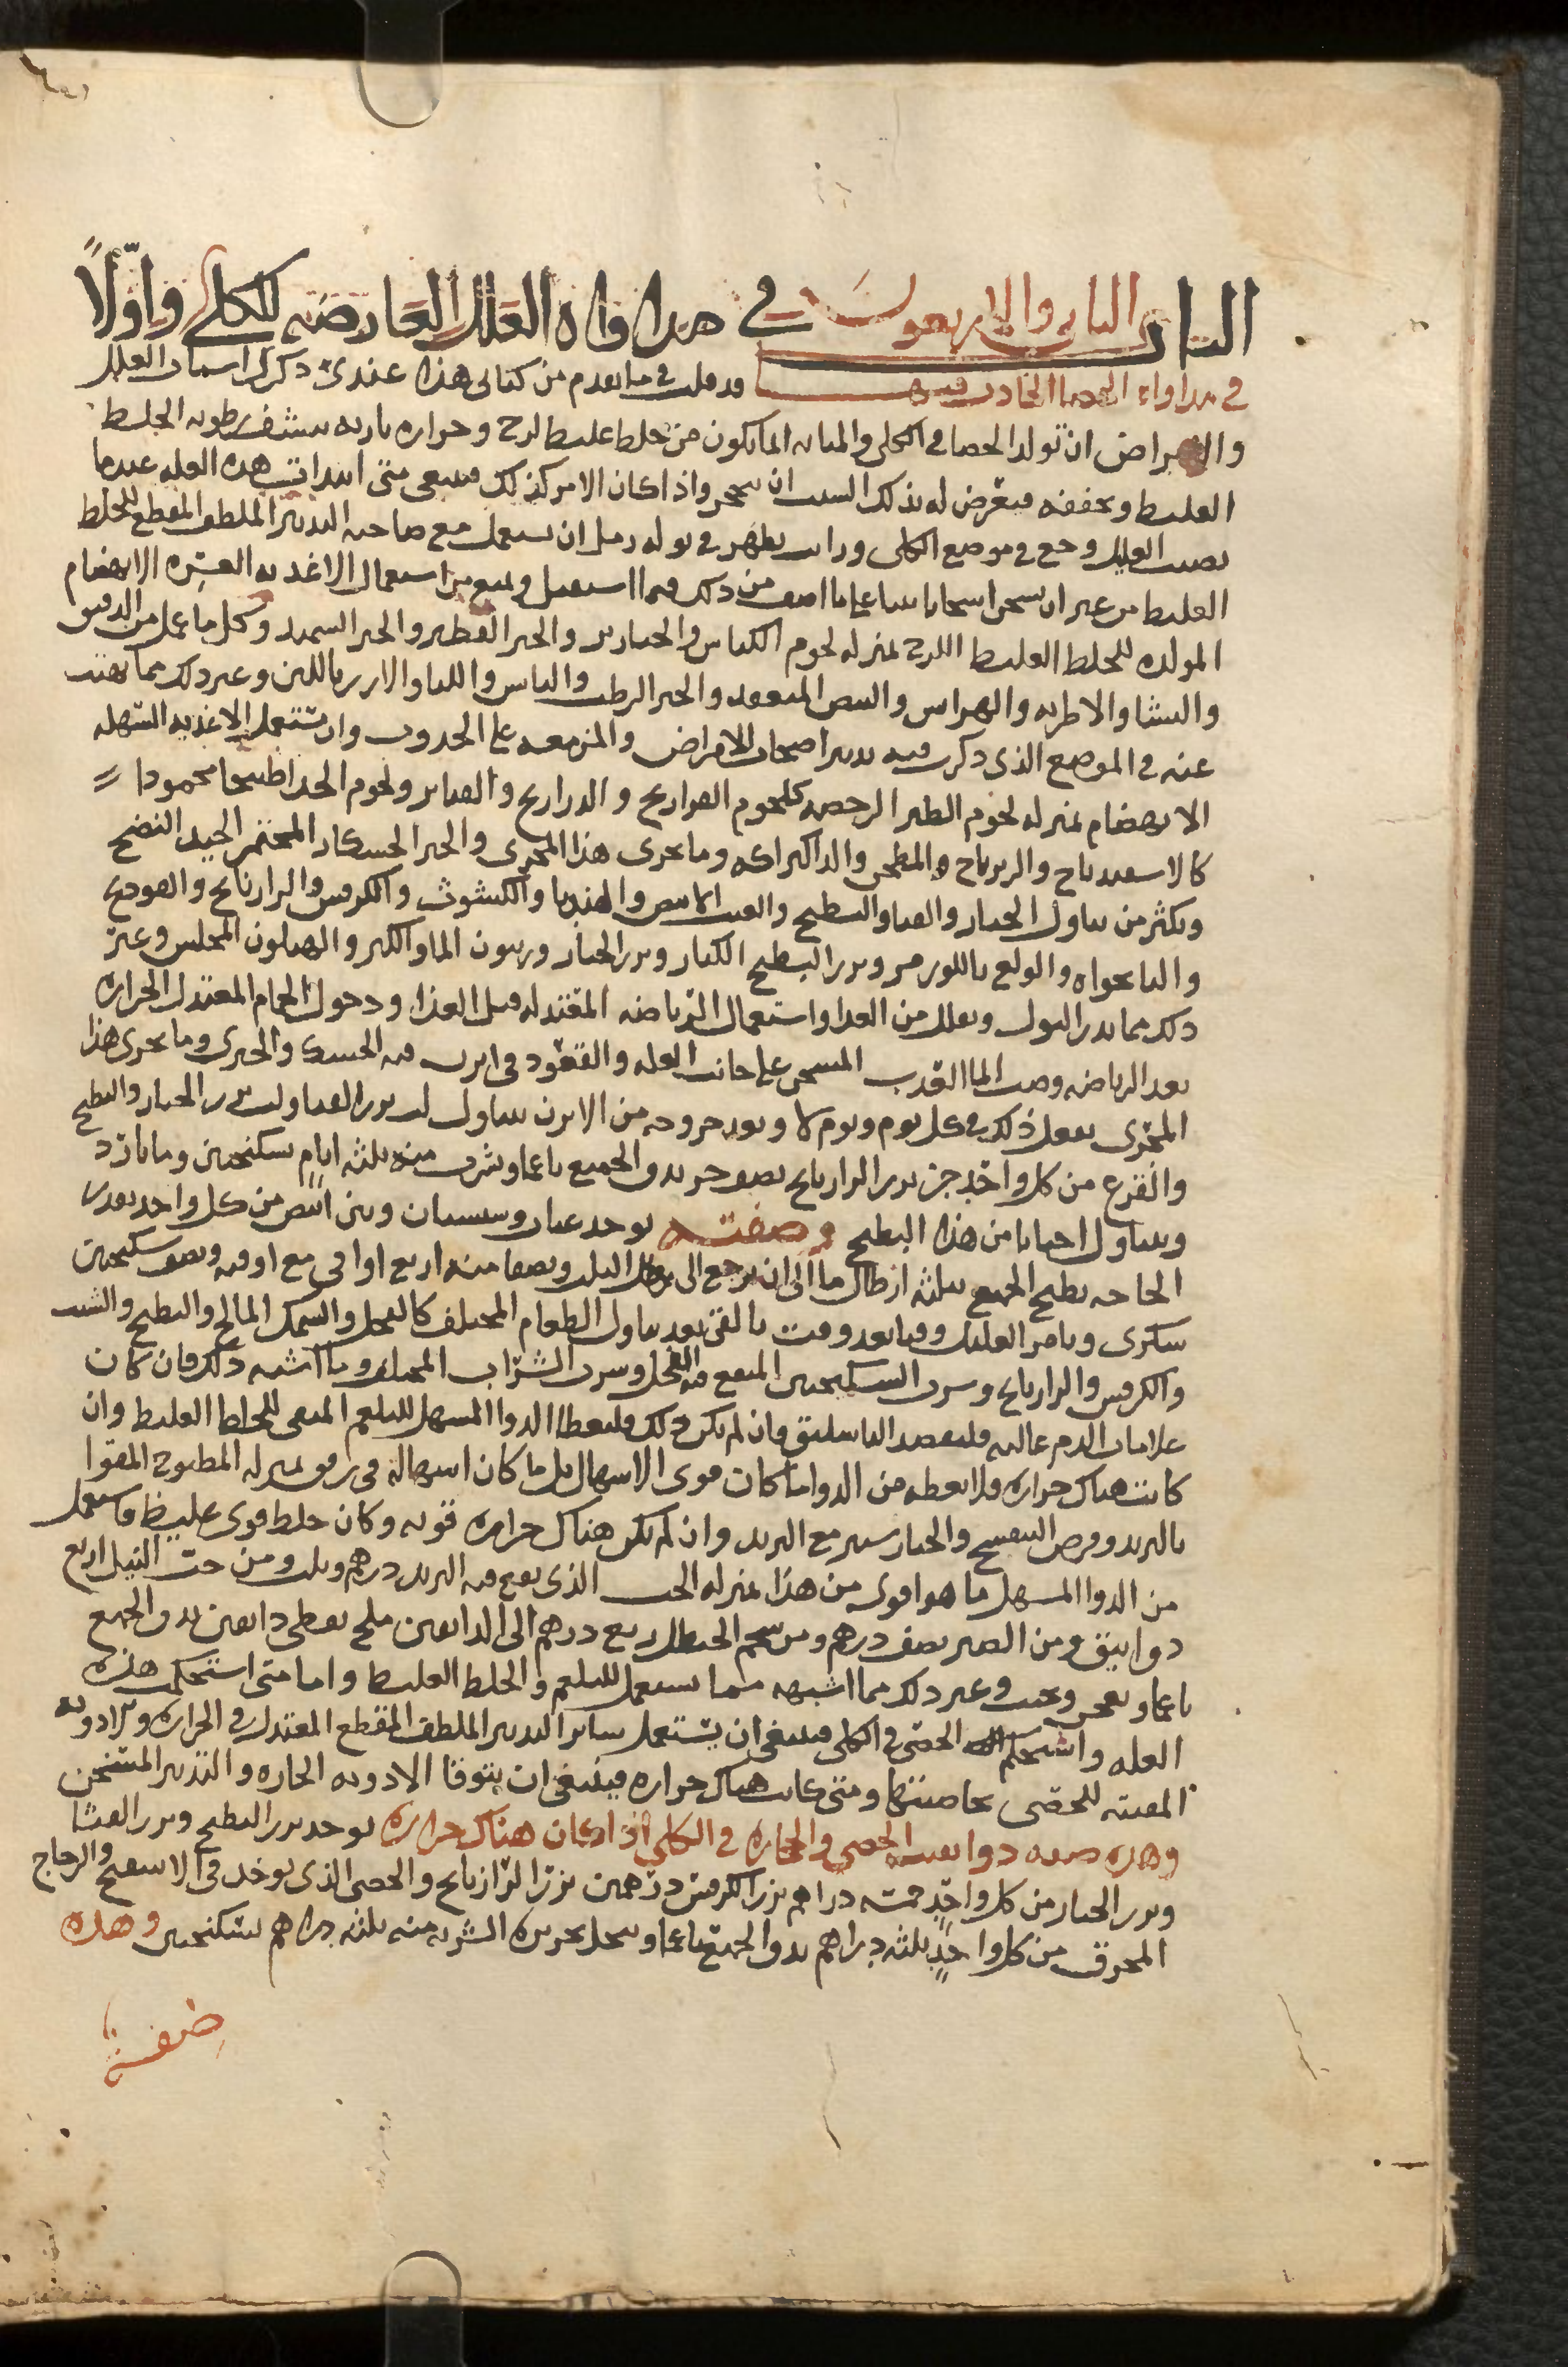 الباب الثانى والاربعون في مداواه العلل العارضه للكلى واولاً
في مداواه الحصا الحادث فيها وقد قلت في ما تقدم من كتابى هذا عندى ذكرى اسباب العلل
والامراض ان تولد الحصا في الكلى والمثانه انما يكون من خلط غليظ لزج وحراره ناريه تنشف رطوبه الخلط
الغليظ وتجففه فيعرض له بذلك السبب ان يتحجر واذا كان الامر كذلك فينبغى متى ابتدات هذه العله عندما
يصيب العليل وجع في موضع الكلى ورايت يظهر في بوله رمل ان تستعمل مع صاحبه التدبير الملطف المقطع للخلط
الغليظ من غير ان يسخن اسخانا بينا على ما اصف من ذلك فيما استعمل ويمنع من استعمال الاغذيه العسره الانهضام
المولده للخلط الغليظ اللزج بمنزله لحوم الكباش والجنازير والخبز الفطير والخبز السميد وكل ما عمل من الدقيق
والنشا والاطريه والهرايس والبيض المنعقد والجبن الرطب واليابس واللبا والارز باللبن وغير ذلك مما نهيت
عنه في الموضع الذى ذكرت فيه تدبير اصحاب الامراض والمزمعه على الحدوث وان تستعمل الاغذيه السهله
الانهضام بمنزله لحوم الطير الرخصه كلحوم الفراريج والدراريج والقنابر ولحوم الجدا طبيخا محمودا
كالاسفيدباج والزيرباج والمطجن والداكبراكه وما يجرى هذا المجرى والخبز الخشكار المختمر الجيد النضج
ويكثر من تناول الخيار والقثا والبطيخ والعنب الابيض والهندبا والكشوث والكرفس والرازيانج والفودنج
والنانخواه والولع باللوز مر وبزر البطيخ الكبار وبزر الخيار وزيتون الما والكبر والهليون المخلل وغير
ذلك مما يدر البول ويقلل من الغدا واستعمال الرياضه المعتدله قبل الغذا ودخول الحمام المعتدل الحراره
بعد الرياضه وصب الما العذب المسخن على جانب العله والقعود في ابزن فيه الحسك والخيرى وما يجرى هذا
المجرى يفعل ذلك في كل يوم ويوم لا وبعد خروجه من الابزن يتناول لب بزر القثا ولب بزر الخيار والبطيخ
والقرع من كل واحد جز بزر الرازيانج نصف جز يدق الجميع ناعما ويشرب منه ثلثه ايام بسكنجبين وما بارد
ويتناول احيانا من هذا الطبيخ وصفته يوخذ عناب وسبستان وتين ابيض من كل واحد بقدر
الحاجه يطبخ الجميع بثلثه ارطال ما الى ان يرجع الى رطل الثلث ويصفا منه اربع اواقى مع اوقيه ونصف سكنجبين
سكرى ويامر العليل وقتا بعد وقت بالقى بعد تناول الطعام المختلف كالفجل والسمك المالح والبطيخ والشبت
والكرفس والرازيانج وشرب السكنجبين المنقع فيه الفجل وشرب الشراب المحلا وما اشبه ذلك فان كان
علامات الدم غالبه فليفصد الباسليق وان لم يكن ذلك فليعطا الدوا المسهل للبلغم المنقى للخلط الغليظ وان
كانت هناك حراره فلا تعطه من الدوا ما كان قوى الاسهال بل ما كان اسهاله في رفق بمنزله المطبوخ المقوا
بالتربد وقرص البنفسج والخيارشنبر مع التربد وان لم يكن هناك حراره قويه وكان خلط قوى غليظ فاستعمل
من الدوا المسهل ما هو اقوى من هذا بمنزله الحب الذى يقع فيه التربد درهم وثلث ومن حب النيل اربع
دوانيق ومن الصبر نصف درهم ومن شحم الحنظل ربع درهم الى الدانقين ملح نفطى دانقين يدق الجميع
ناعما ويعجن ويحبب وغير ذلك مما اشبهه مما يستعمل للبلغم والخلط الغليظ واما متى استحكمت هذه
العله واستحكم الحصى في الكلى فينبغى ان يستعمل ساير التدبير الملطف المقطع المعتدل في الحراره والادويه
المفتته للحصى بخاصيتها ومتى كانت هناك حراره فينبغى ان يتوقا الادويه الحاره والتدبير المسخن
وهذه صفه دوا يفتت الحصى والحجاره في الكلى اذا كان هناك حراره يوخذ بزر البطيخ وبزر القثا
وبزر الخيار من كل واحد خمسه دراهم بزر الكرفس درهمين بزر الرازيانج والحصى الذى يوخذ في الاسفنج والزجاج
المحرق من كل واحد ثلثه دراهم يدق الجميع ناعما وينخل بحريره الشربه منه ثلثه دراهم بسكنجبين وهذه
صفة